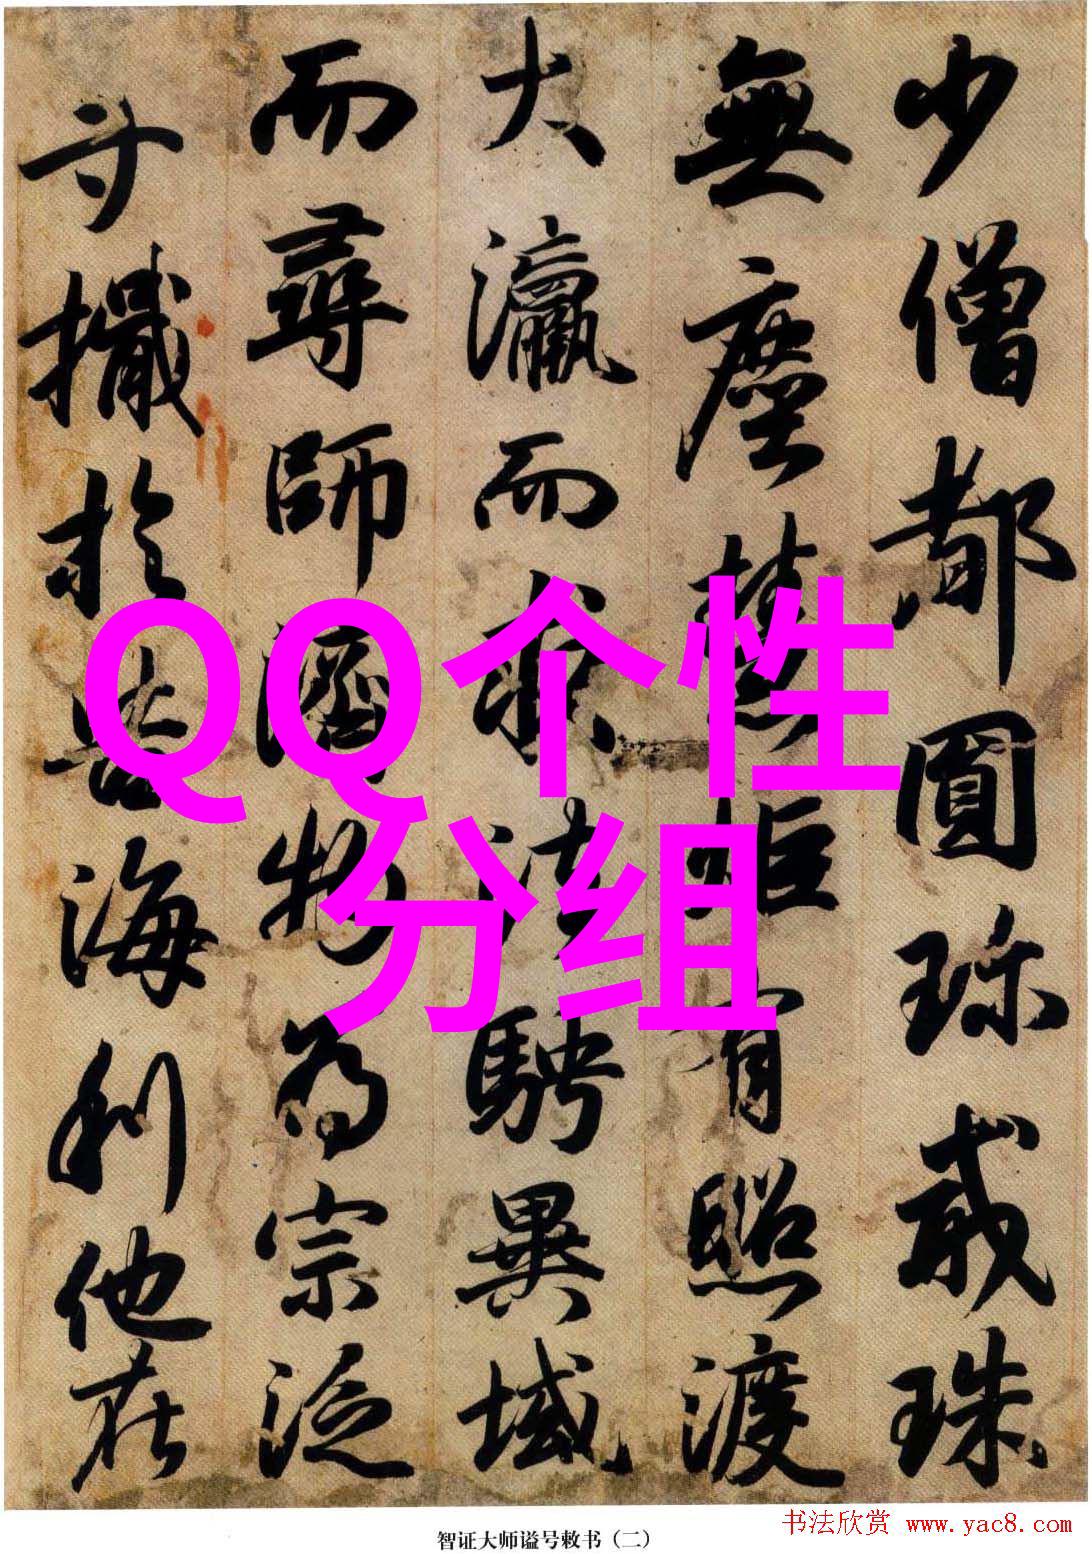 少僧都圓珎戒珠
無塵慧炬有照渡
大瀛而求法騁異域
而尋師濟物為宗泛
寸檝於苦海利他在
QQ个性
分组
智证大师谥号敕书（二）
书法欣赏 www.yac8.com